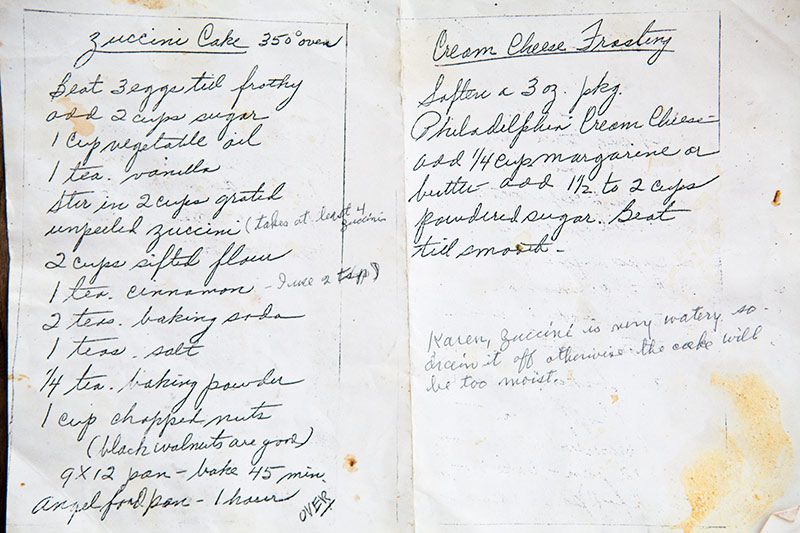 Zuccini Cake 350° oven
Beat 3 eggs till frothy
add 2 cups sugar
1 cup vegetable oil
1 tea. vanilla
Stir in 2 cups grated
unpeeled zuccini (takes at least 4
zuccinis
2 cups sifted flour
1 tea. cinnamon - I use 2 tsp)
2 teas. baking soda
1 teas. salt
1/4 tea. baking powder
1 cup chopped nuts
(black walnuts are good)
9 X 12 pan - bake 45 min.
Angel food pan - 1 hour
OVER
Cream Cheese Frosting
Soften a 3 oz. pkg.
Philadelphia Cream Cheese -
add 1/4 cup margarine or
butter - add 1 1/2 to 2 cups
powdered sugar. Beat
till smooth -
Karen, zuccini is very watery so
drain it off otherwise the cake will
be too moist.